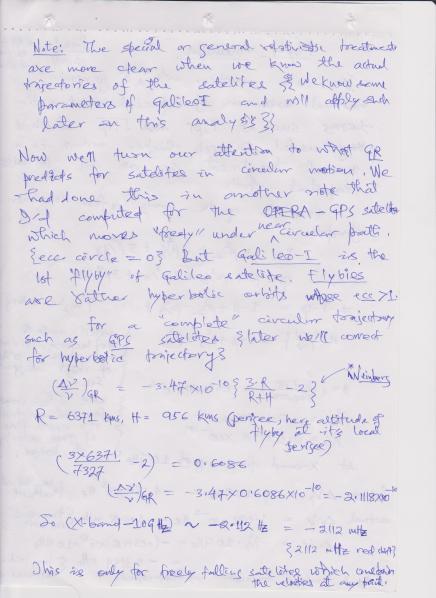 Note: The special or general relativistic treatments
are more clear when we know the actual
trajectories of the satellites {{We know some
parameters of Galileo I and will apply such
later in this analysis}}
Now we'll turn our attention to what GR
predicts for satellites in circular motion. We
had done this in another note that
I'd computed for the OPERA-GPS satellite
which moves "freely" under near circular path.
{ecc circle = 0} But Galileo-I is the
1st "flyby" of Galileo satellite. Flybies
are rather hyperbolic orbits whose ecc >1.
for a "complete" circular trajectory
such as GPS satellites {later we'll correct
for hyperbolic trajectory}
(Δν/ν)GR = -3.47×10^-10 {3R/(R+H) - 2} Weinberg
R = 6371 kms, H = 956 kms (perigee, here altitude of
flyby at its local
perigee)
(3×6371/7327 - 2) = 0.6086
(Δν/ν)GR = -3.47×0.6086×10^-10 = -2.1118×10^-10
So (X-band-10GHz) ~ -2.112 Hz = -2112 mHz
{2112 mHz red shift}
This is only for freely falling satellites which
the velocities at any point.